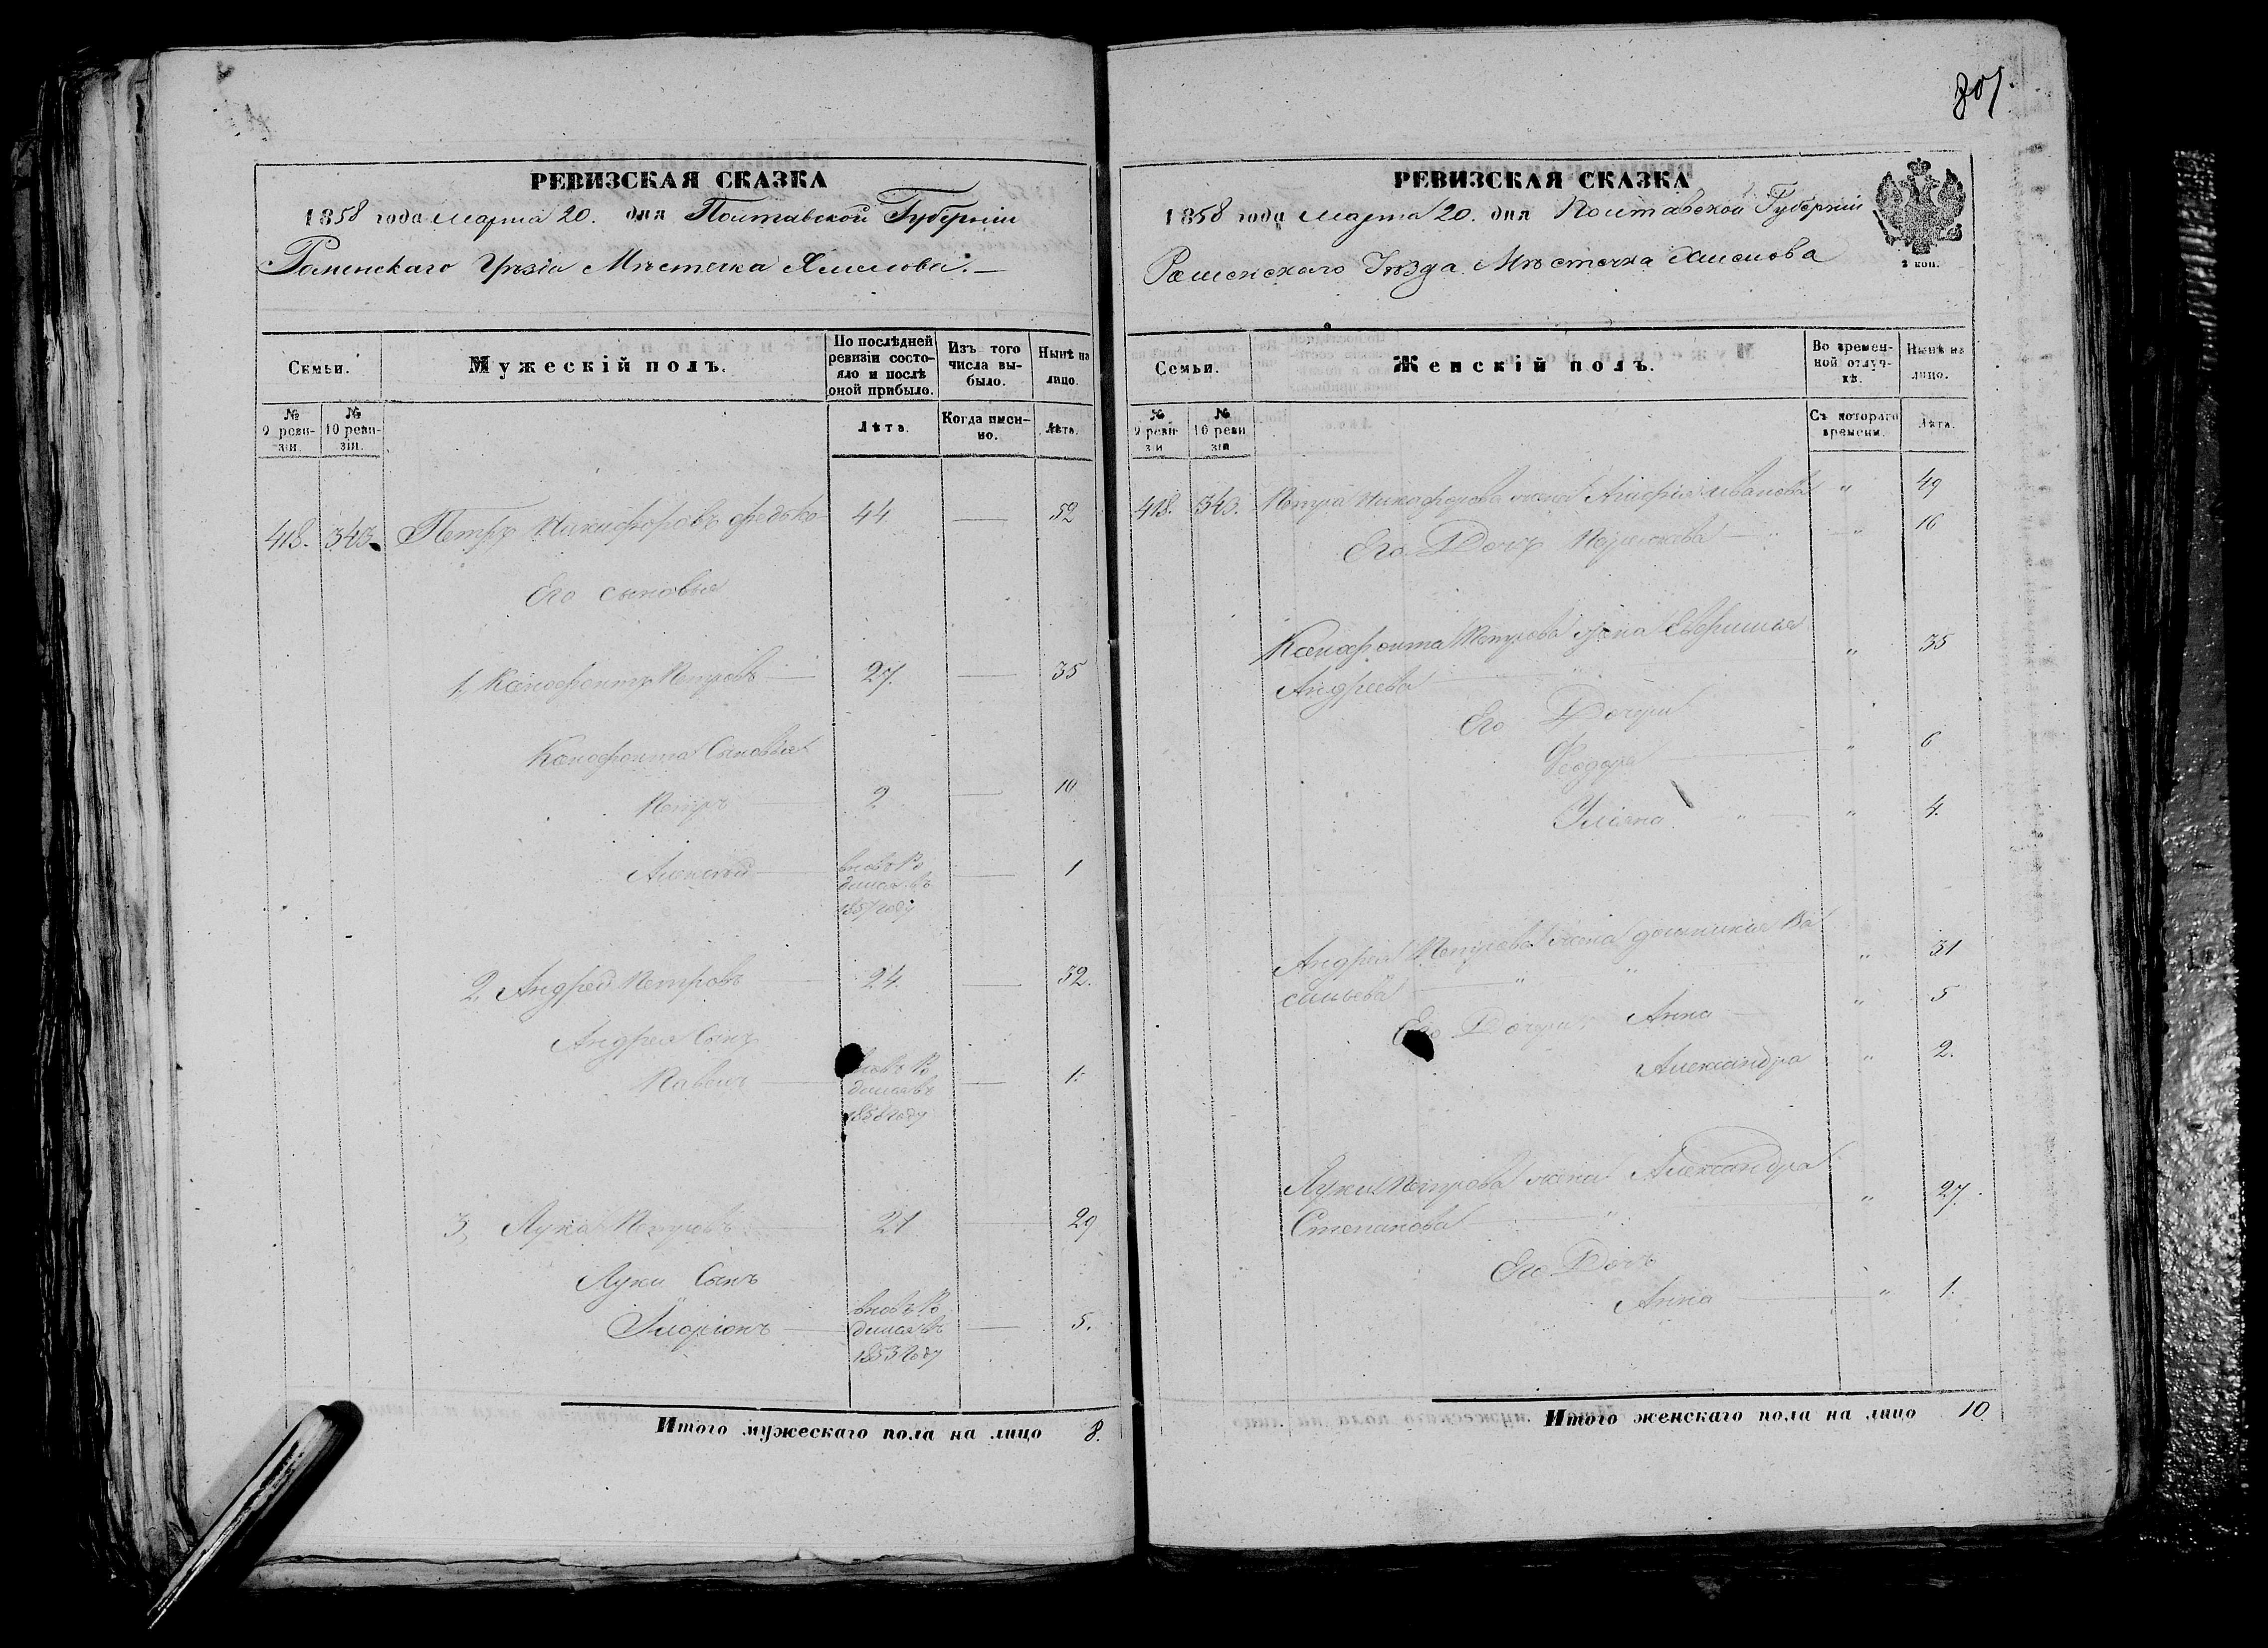 801.
РЕВИЗСКАЯ СКАЗКА
1858 года марта 20. дня Полтавской Губерніи
Роменскаго Уѣзда Мѣстечка Хмелова. —
Семьи.
Мужескій полъ.
По послѣдней ревизіи состояло и послѣ оной прибыло.
Изъ того числа выбыло.
Нынѣ на лицо.
№ 9 ревизіи.
№ 10 ревизіи.
Лѣта.
Когда именно.
Лѣта.
418. 343. Петръ Никифоровъ Федько 44 — 52
Его сыновья
1, Ксенофонтъ Петровъ — 27. — 35
Ксенофонта Сыновья
Петръ — 2 — 10
Алексѣй — вновь Ро — 1
дился въ
1857 году
2, Андрей Петровъ — 24. — 32.
Андрея Сынъ
Павелъ — вновь Ро — 1.
дился въ
1858 году
3, Лука Петровъ — 21 — 29
Луки Сынъ
Иларіонъ — вновь Ро — 5.
дился въ
1853 году
Итого мужескаго пола на лицо 8.
РЕВИЗСКАЯ СКАЗКА
1858 года марта 20. дня Полтавской Губерніи
Роменскаго Уѣзда Мѣстечка Хмелова
2 коп.
Семьи.
Женскій полъ.
Во временной отлучкѣ.
Нынѣ на лицо.
№ 9 ревизіи
№ 10 ревизіи
Съ котораго времени.
Лѣта.
418. 343. Петра Никифорова жена Иванова " 49
Его Дочь — " 16
Ксенофонта Петрова жена " 35
Андреева
Его Дочери
Феодора — " 6
Уліяна " — " 4.
Андрея Петрова жена Домникія Ва " 31
сильева — " "
Его Дочери Анна — " 5
Александра " 2.
Луки Петрова жена Александра " 27.
Степанова — "
Его Дочь
Анна — " 1.
Итого женскаго пола на лицо 10